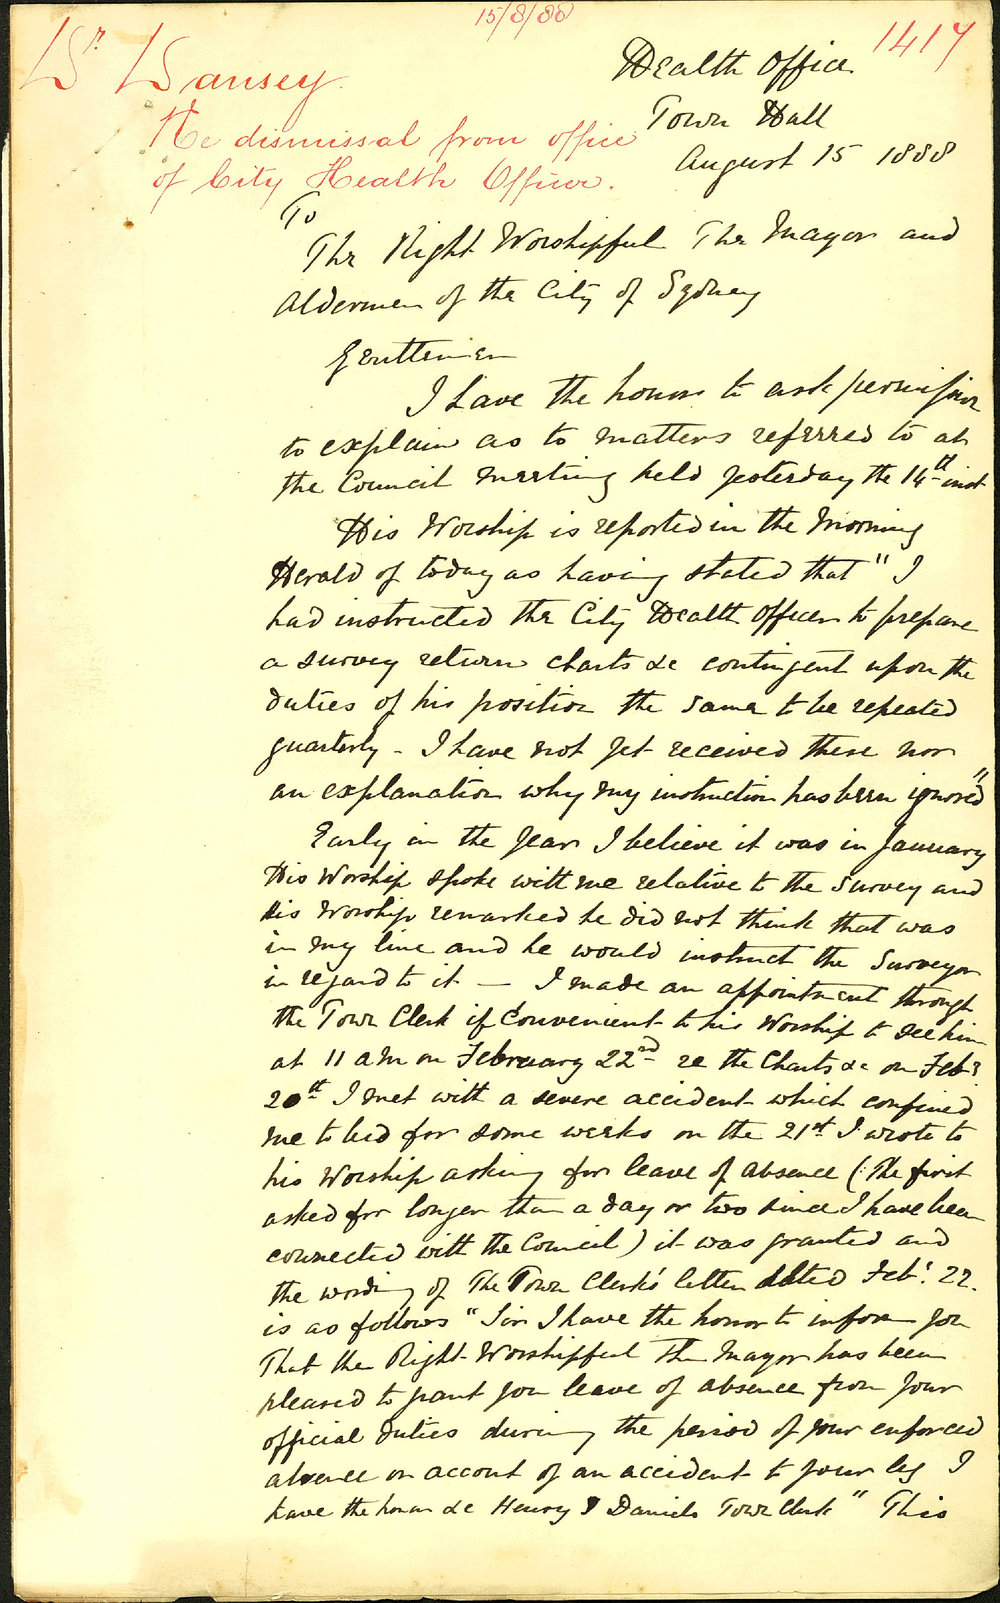 15/8/88
1417
Dr Dansey
Re dismissal from office
of City Health Officer.
Health Office
Town Hall
August 15 1888
To
The Right Worshipful The Mayor and
Aldermen of the City of Sydney
Gentlemen
I have the honor to ask permission
to explain as to matters referred to at
the Council meeting held yesterday the 14th inst
His Worship is reported in the Morning
Herald of today as having stated that "I
had instructed the City Health Officer to prepare
a survey return charts &c contingent upon the
duties of his position the same to be repeated
quarterly - I have not yet received these nor
an explanation why my instruction has been ignored"
Early in the year I believe it was in January
His Worship spoke with me relative to the survey and
His Worship remarked he did not think that was
in my line and he would instruct the Surveyor
in regard to it — I made an appointment through
the Town Clerk if convenient to his Worship to see him
at 11 am on February 22nd re the Charts &c on Feby
20th I met with a severe accident which confined
me to bed for some weeks on the 21st I wrote to
his Worship asking for leave of absence (The first
asked for longer than a day or two since I have been
connected with the Council) it was granted and
the wording of The Town Clerk's letter dated Feby. 22.
is as follows "Sir I have the honor to inform you
That the Right Worshipful The Mayor has been
pleased to grant you leave of absence from your
official duties during the period of your enforced
absence on account of an accident to your leg I
have the honor &c Henry J Daniels Town Clerk" This